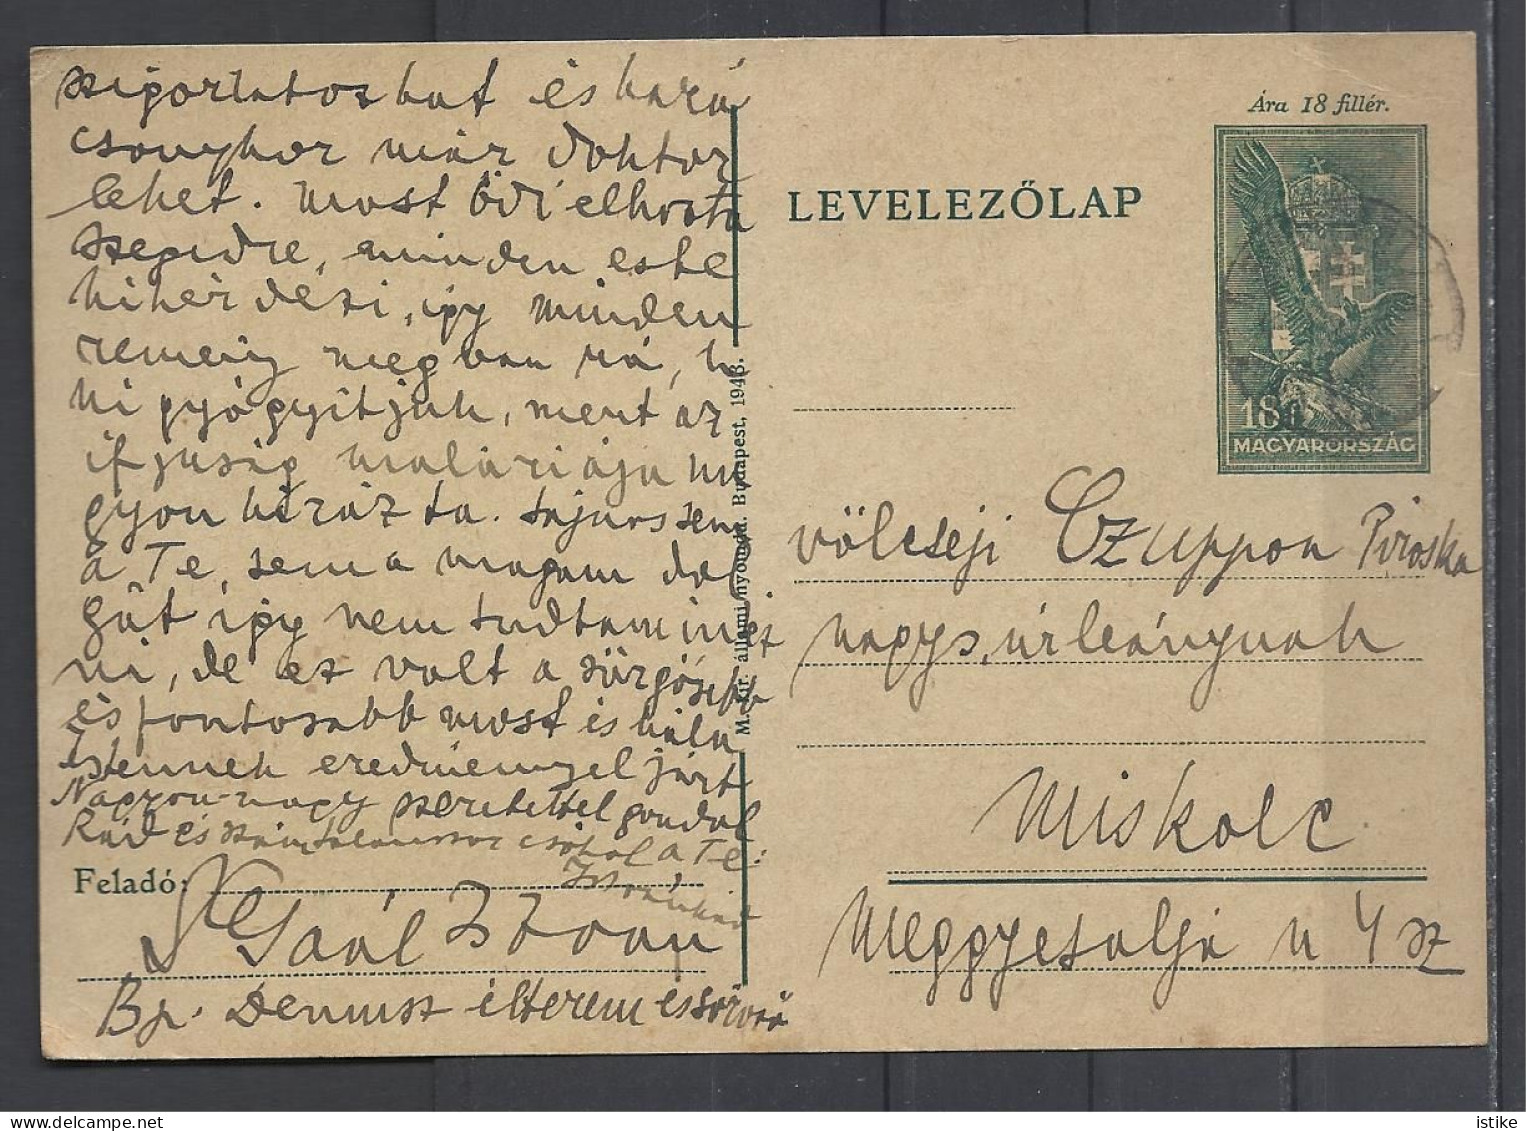 szigorlatozhat és kará
csonykor már doktor
lehet. Most Ödi elhozta
Szegedre, minden este
kikérdezi, így minden
remény megvan rá, h
ki gyógyítjuk, mert az
ifjuság maláriája na
gyon kirázta. Sajnos sem
a Te, sem a magam dol
gát így nem tudtam intéz
ni, de ez volt a sürgősebb
és fontosabb most és hála
Istennek eredménnyel járt
Nagyon-nagy szeretettel gondol
Rád és számtalanszor csókol a Te:
Feladó: Gaál István
Bp. Dennisz étterem
M. kir. állami nyomda. Budapest, 1943.
LEVELEZŐLAP
Ára 18 fillér.
18f
MAGYARORSZÁG
völcseji Czuppon Piroska
nagys. úrleánynak
Miskolc
Meggyesalja u 4 sz
www.delcampe.net
istike